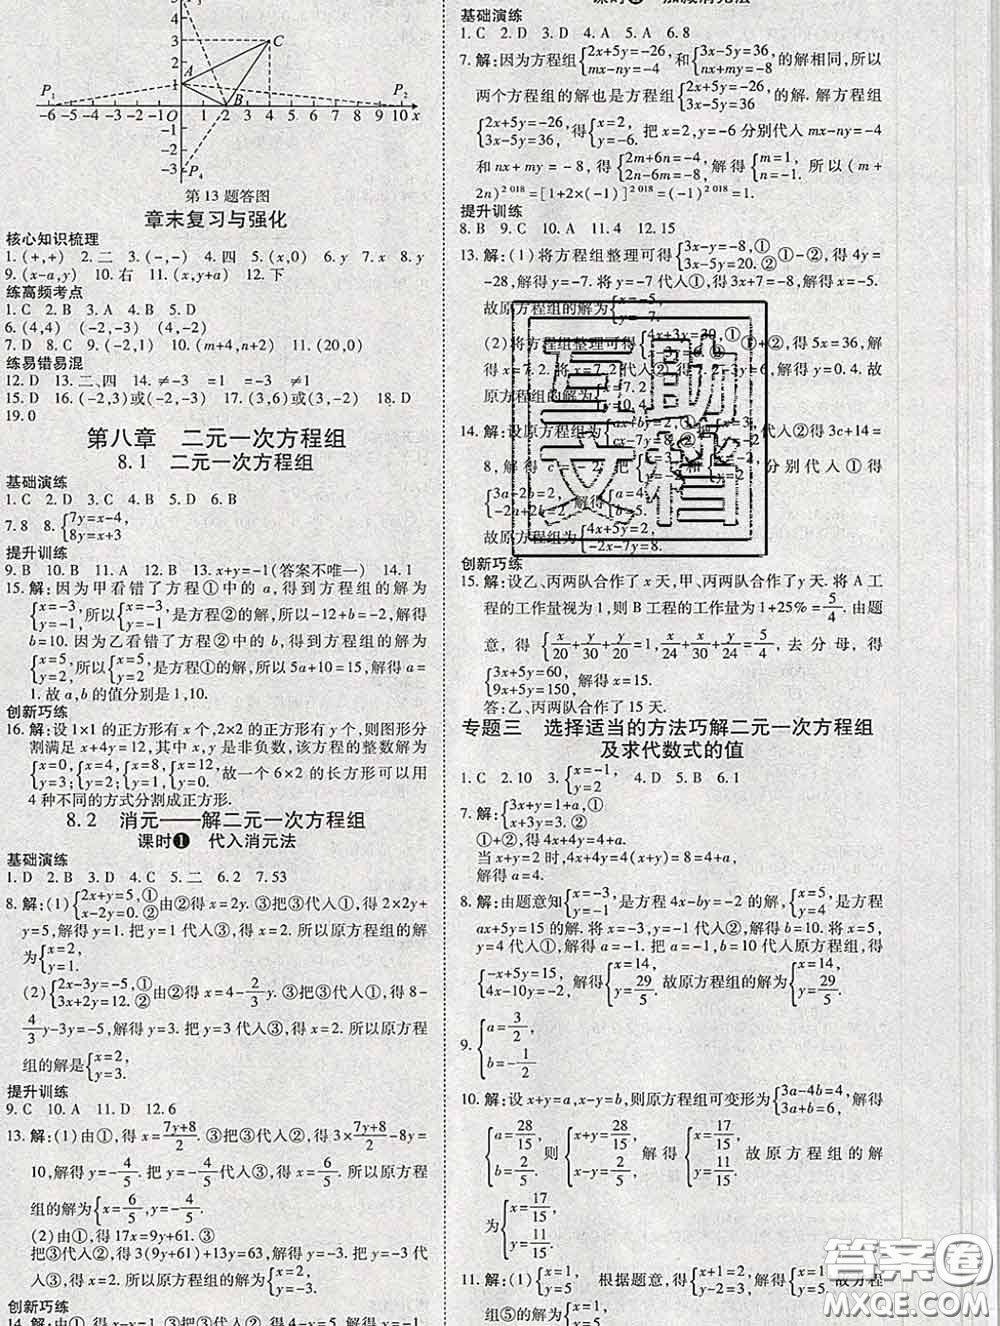 5
4
3
2
1
-1
-2
-3
A
B
C
P₁
P₂
P₄
-6 -5 -4 -3 -2 -1 O 1 2 3 4 5 6 7 8 9 10 x
第13题答图
章末复习与强化
核心知识梳理
1.(+,+) 2.二 3.(-,-) 4.四 5.(x,0) 6.y 7.x 8.y
9.(x-a,y) 10.右 11.(x,y+a) 12.下
练高频考点
1.C 2.B 3.A 4.B 5.D
6.(4,4) (-2,-3) (4,-2)
7.D 8.C 9.(-2,1) 10.(m+4,n+2) 11.(20,0)
练易错易混
12.D 13.二、四 14.≠-3 =1 =-3 ≠1
15.D 16.(-2,3)或(-2,-3) 17.(3,6)或(3,-2) 18.D
19.0
第八章 二元一次方程组
8.1 二元一次方程组
基础演练
1.C 2.D 3.C 4.D 5.D 6.B
7.8 8.{7y=x-4, 8y=x+3
提升训练
9.B 10.B 11.A 12.B 13.x+y=-1(答案不唯一) 14.1
15.解:因为甲看错了方程①中的a,得到方程组的解为
{x=-3, y=-1, 所以{x=-3, y=-1, 是方程②的解,所以-12+b=-2,解得
b=10. 因为乙看错了方程②中的b,得到方程组的解为
{x=5, y=2, 所以{x=5, y=2, 是方程①的解,所以5a+10=15,解得a=
1.故a,b的值分别是1,10.
创新巧练
16.解:设1×1的正方形有x个,2×2的正方形有y个,则图形分
割满足x+4y=12,其中x,y是非负数,该方程的整数解为
{x=0, y=3; {x=4, y=2; {x=8, y=1; {x=12, y=0, 故一个6×2的长方形可以用
4种不同的方式分割成正方形.
8.2 消元——解二元一次方程组
课时❶ 代入消元法
基础演练
1.D 2.B 3.D 4.C 5.二 6.2 7.53
8.解:(1){2x+y=5,① x-2y=0.② 由②得x=2y.③把③代入①,得2×2y+
y=5,解得y=1.把y=1代入③,得x=2.所以原方程组的解
为{x=2, y=1.
(2){2x-3y=-5,① 3x+2y=12.② 由②得x=4-2/3y.③把③代入①,得8-
4/3y-3y=-5,解得y=3.把y=3代入③,得x=2.所以原方程
组的解是{x=2, y=3.
提升训练
9.C 10.A 11.D 12.6
13.解:(1)由①,得x=(7y+8)/2.③把③代入②,得3×(7y+8)/2-8y=
10,解得y=-4/5.把y=-4/5代入③,得x=6/5.所以原方程
组的解为{x=6/5, y=-4/5.
(2)由①,得17x=9y+61.③
把③代入②,得3(9y+61)+13y=103,解得y=-2.把y=-2代
入③,得x=
创新巧练
课时❷ 加减消元法
基础演练
1.C 2.D 3.D 4.A 5.A 6.8
7.解:因为方程组{2x+5y=-26, mx-ny=-4 和{3x-5y=36, nx+my=-8 的解相同,所以
两个方程组的解也是方程组{2x+5y=-26, 3x-5y=36 的解.解方程组
{2x+5y=-26, 3x-5y=36, 得{x=2, y=-6. 把x=2,y=-6分别代入mx-ny=-4
和nx+my=-8,得{2m+6n=-4, 2n-6m=-8, 解得{m=1, n=-1. 所以(m+
2n)^2018=[1+2×(-1)]^2018=1.
提升训练
8.B 9.C 10.A 11.4 12.15
13.解:(1)将方程组整理可得{3x-y=-8,① 3x-5y=20.② ①-②,得4y=
-28,解得y=-7.将y=-7代入①,得3x+7=-8,解得x=-5.
故原方程组的解为{x=-5, y=-7.
(2)将方程组整理可得 ①+②,得5x=36,解
得x=7.2. 解得y=0.4.故
14.解:设原方程组为 代入②得3c+14=
8,解得c=-2.把 分别代入①得
{3a-2b=2, -2a+2b=2, 解得{a=4, b=5.
故原方程组为{4x+5y=2, -2x-7y=8.
创新巧练
15.解:设乙、丙两队合作了x天,甲、丙两队合作了y天.将A工
程的工作量视为1,则B工程的工作量为1+25%=5/4.由题
意,得{x/30+
去分母,得
{3x+5y=60, 9x+5y=150, 解得{x=15, y=3.
答:乙、丙两队合作了15天.
专题三 选择适当的方法巧解二元一次方程组
及求代数式的值
1.C 2.10 3.{x=-1, y=2 4.D 5.B 6.1
7.解:{3x+y=1+a,① x+3y=3.②
①+②,得4x+4y=4+a.
当x+y=2时,4x+4y=4(x+y)=8=4+a.
解得a=4.
8.解:由题意知{x=-3, y=-1, 是方程4x-by=-2的解,{x=5, y=4, 是方程
ax+5y=15的解.将x=-3,y=-1代入②,解得b=10.将x=5,
y=4代入①,解得a=-1.把a=-1,b=10代入原方程组,得
{-x+5y=15, 4x-10y=-2, 解得{x=14, y=29/5. 故原方程组的解为{x=14, y=29/5.
9.{a=3/2, b=-1/2
10.解:设x+y=a,x-y=b,则原方程组可变形为{3a-4b=4, 3a+b=6, 解得
{a=28/15, b=2/5. 则{x+y=28/15, x-y=2/5. 解得{x=17/15, y=11/15. 故原方程组的解
为{x=17/15, y=11/15.
11.解:(1){x=1, y=5 根据题意,得{x+1=2, y-2=3, 解得{x=1, y=5.故方程
组⑤的解为{x=1,
互助文档
答案圈
MXQE.COM